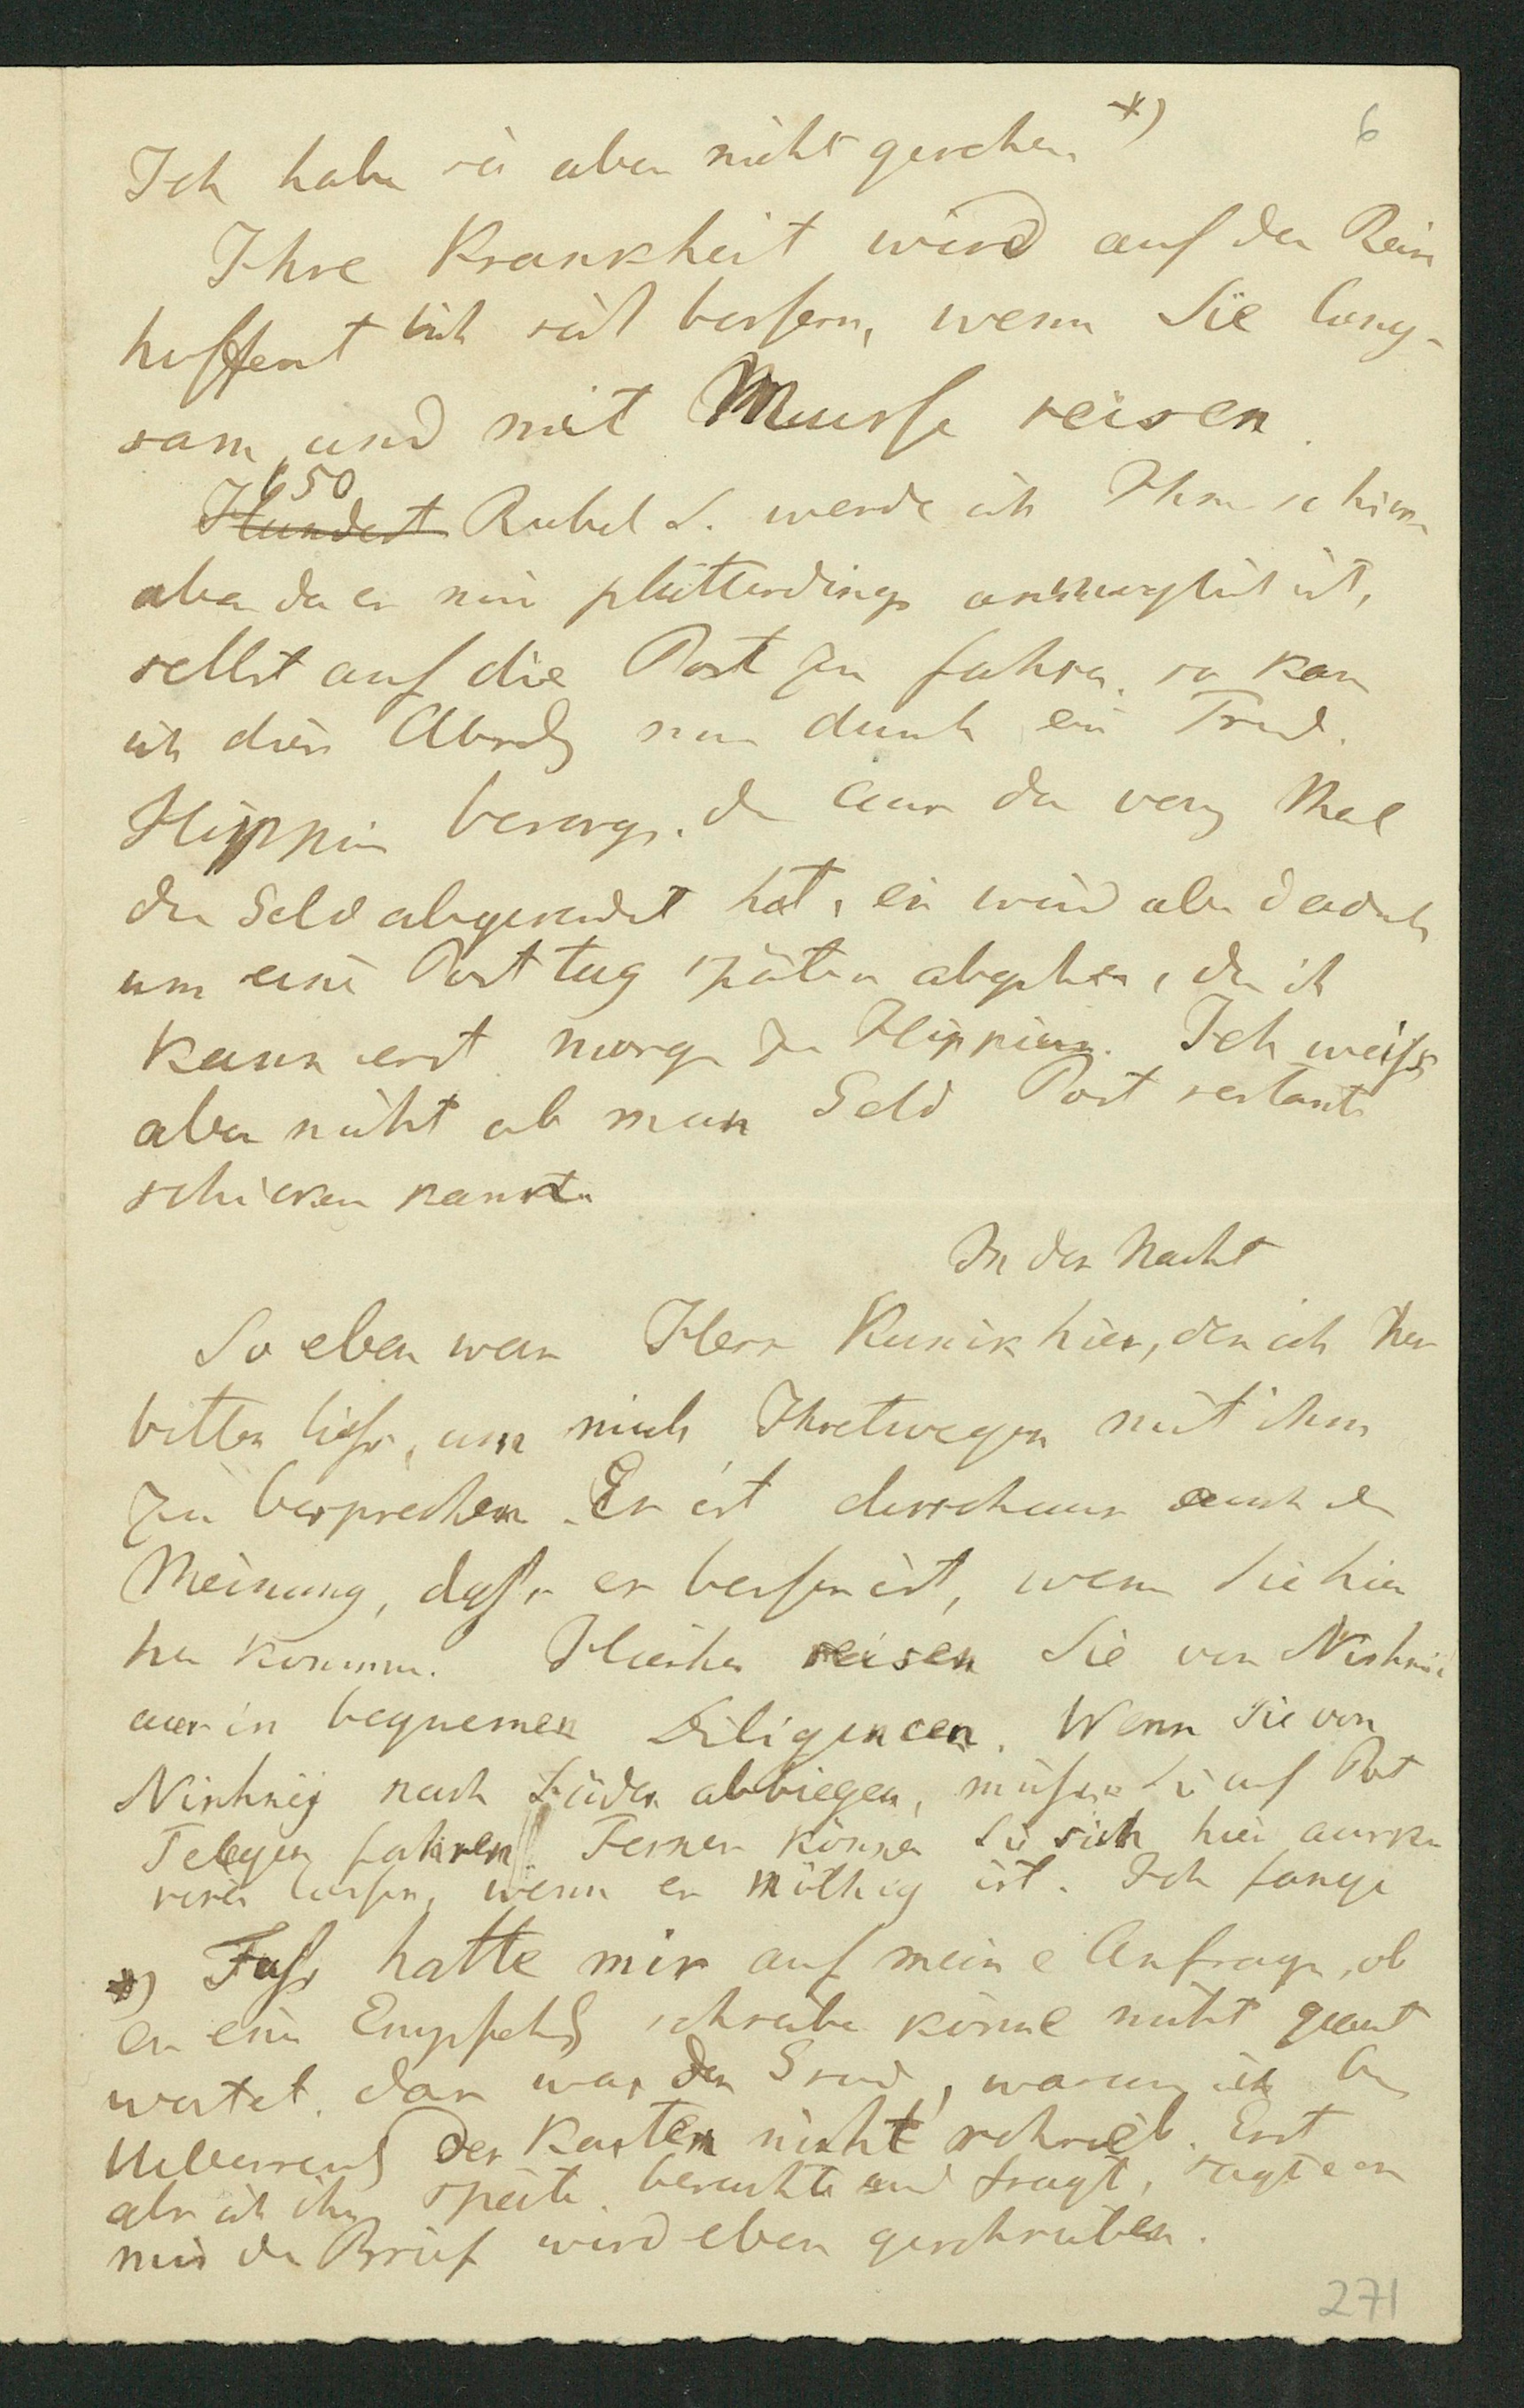 6
Ich habe sie aber nicht gesehen *)
Ihre Krankheit wird auf der Reise
hoffentlich sich bessern, wenn Sie lang-
sam und mit Muusse reisen.
150
Hundert Rubel S. werde ich Ihnen schicken
aber da es mir platterdings unmöglich ist,
selbst auf die Post zu fahren, so kann
ich diese Absendg nur durch
Hippius besorgen, der auch das vorig Mal
das Geld abgesendet hat, es wird aber dadurch
um eine Posttag später abgehen, denn ich
kann erst morgen zu Hippius. Ich weiss
aber nicht ob man Geld Post restante
schicken kann.
In der Nacht
So eben war Herr Kunik hier, den ich her
bitten liess, um mich Ihretwegen mit ihm
zu besprechen. Er ist durchaus auch der
Meinung, dass es besser ist, wenn Sie hier
her kommen. Hierher reisen Sie von Nishnij
aus in bequemen Diligencen. Wenn Sie von
Nishnij nach Süden abbiegen, müssen Sie auf Post
Telegen fahren. Ferner können Sie sich hier aurku
riren lassen, wenn es nöthig ist. Ich fange
*) Fuss hatte mir auf meine Anfrage, ob
er eine Empfehlg schreiben könne nicht geant
wortet. das war der Grund, warum ich bei
Uebersendg der Karten nicht schrieb. Erst
als ich ihn später besuchte und fragte, sagte er
mir der Brief wird eben geschrieben.
271